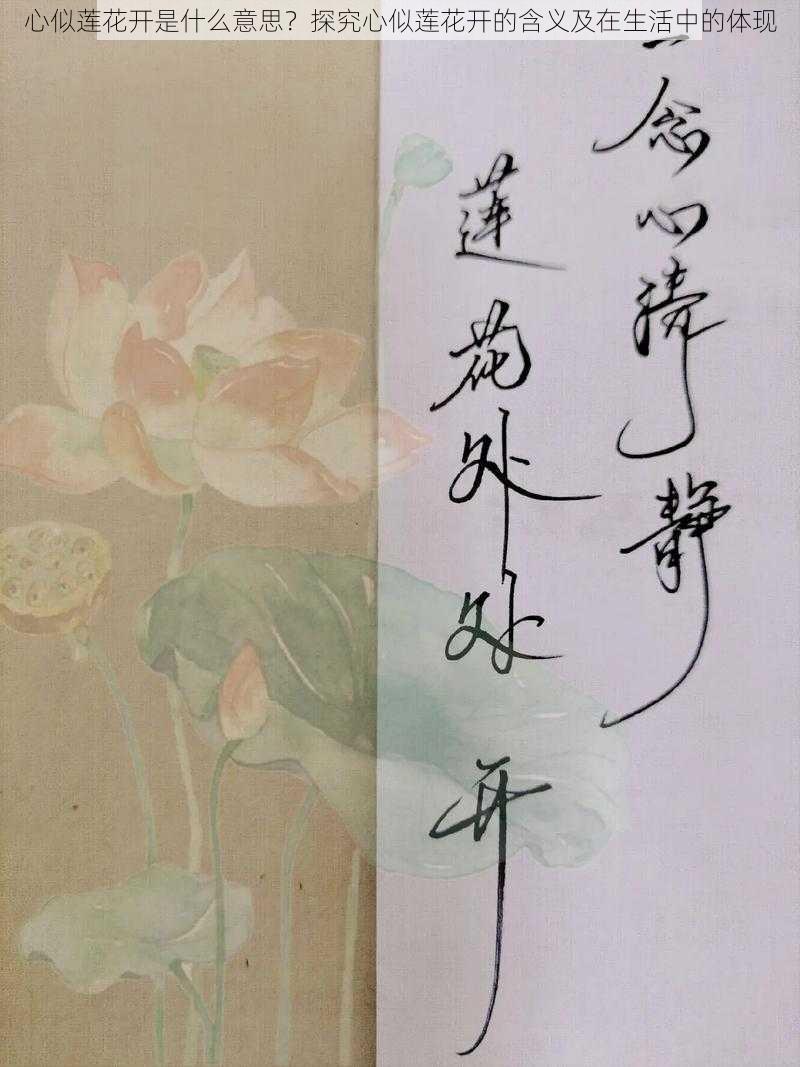 心似莲花开是什么意思？探究心似莲花开的含义及在生活中的体现
一念心清静
莲花处处开